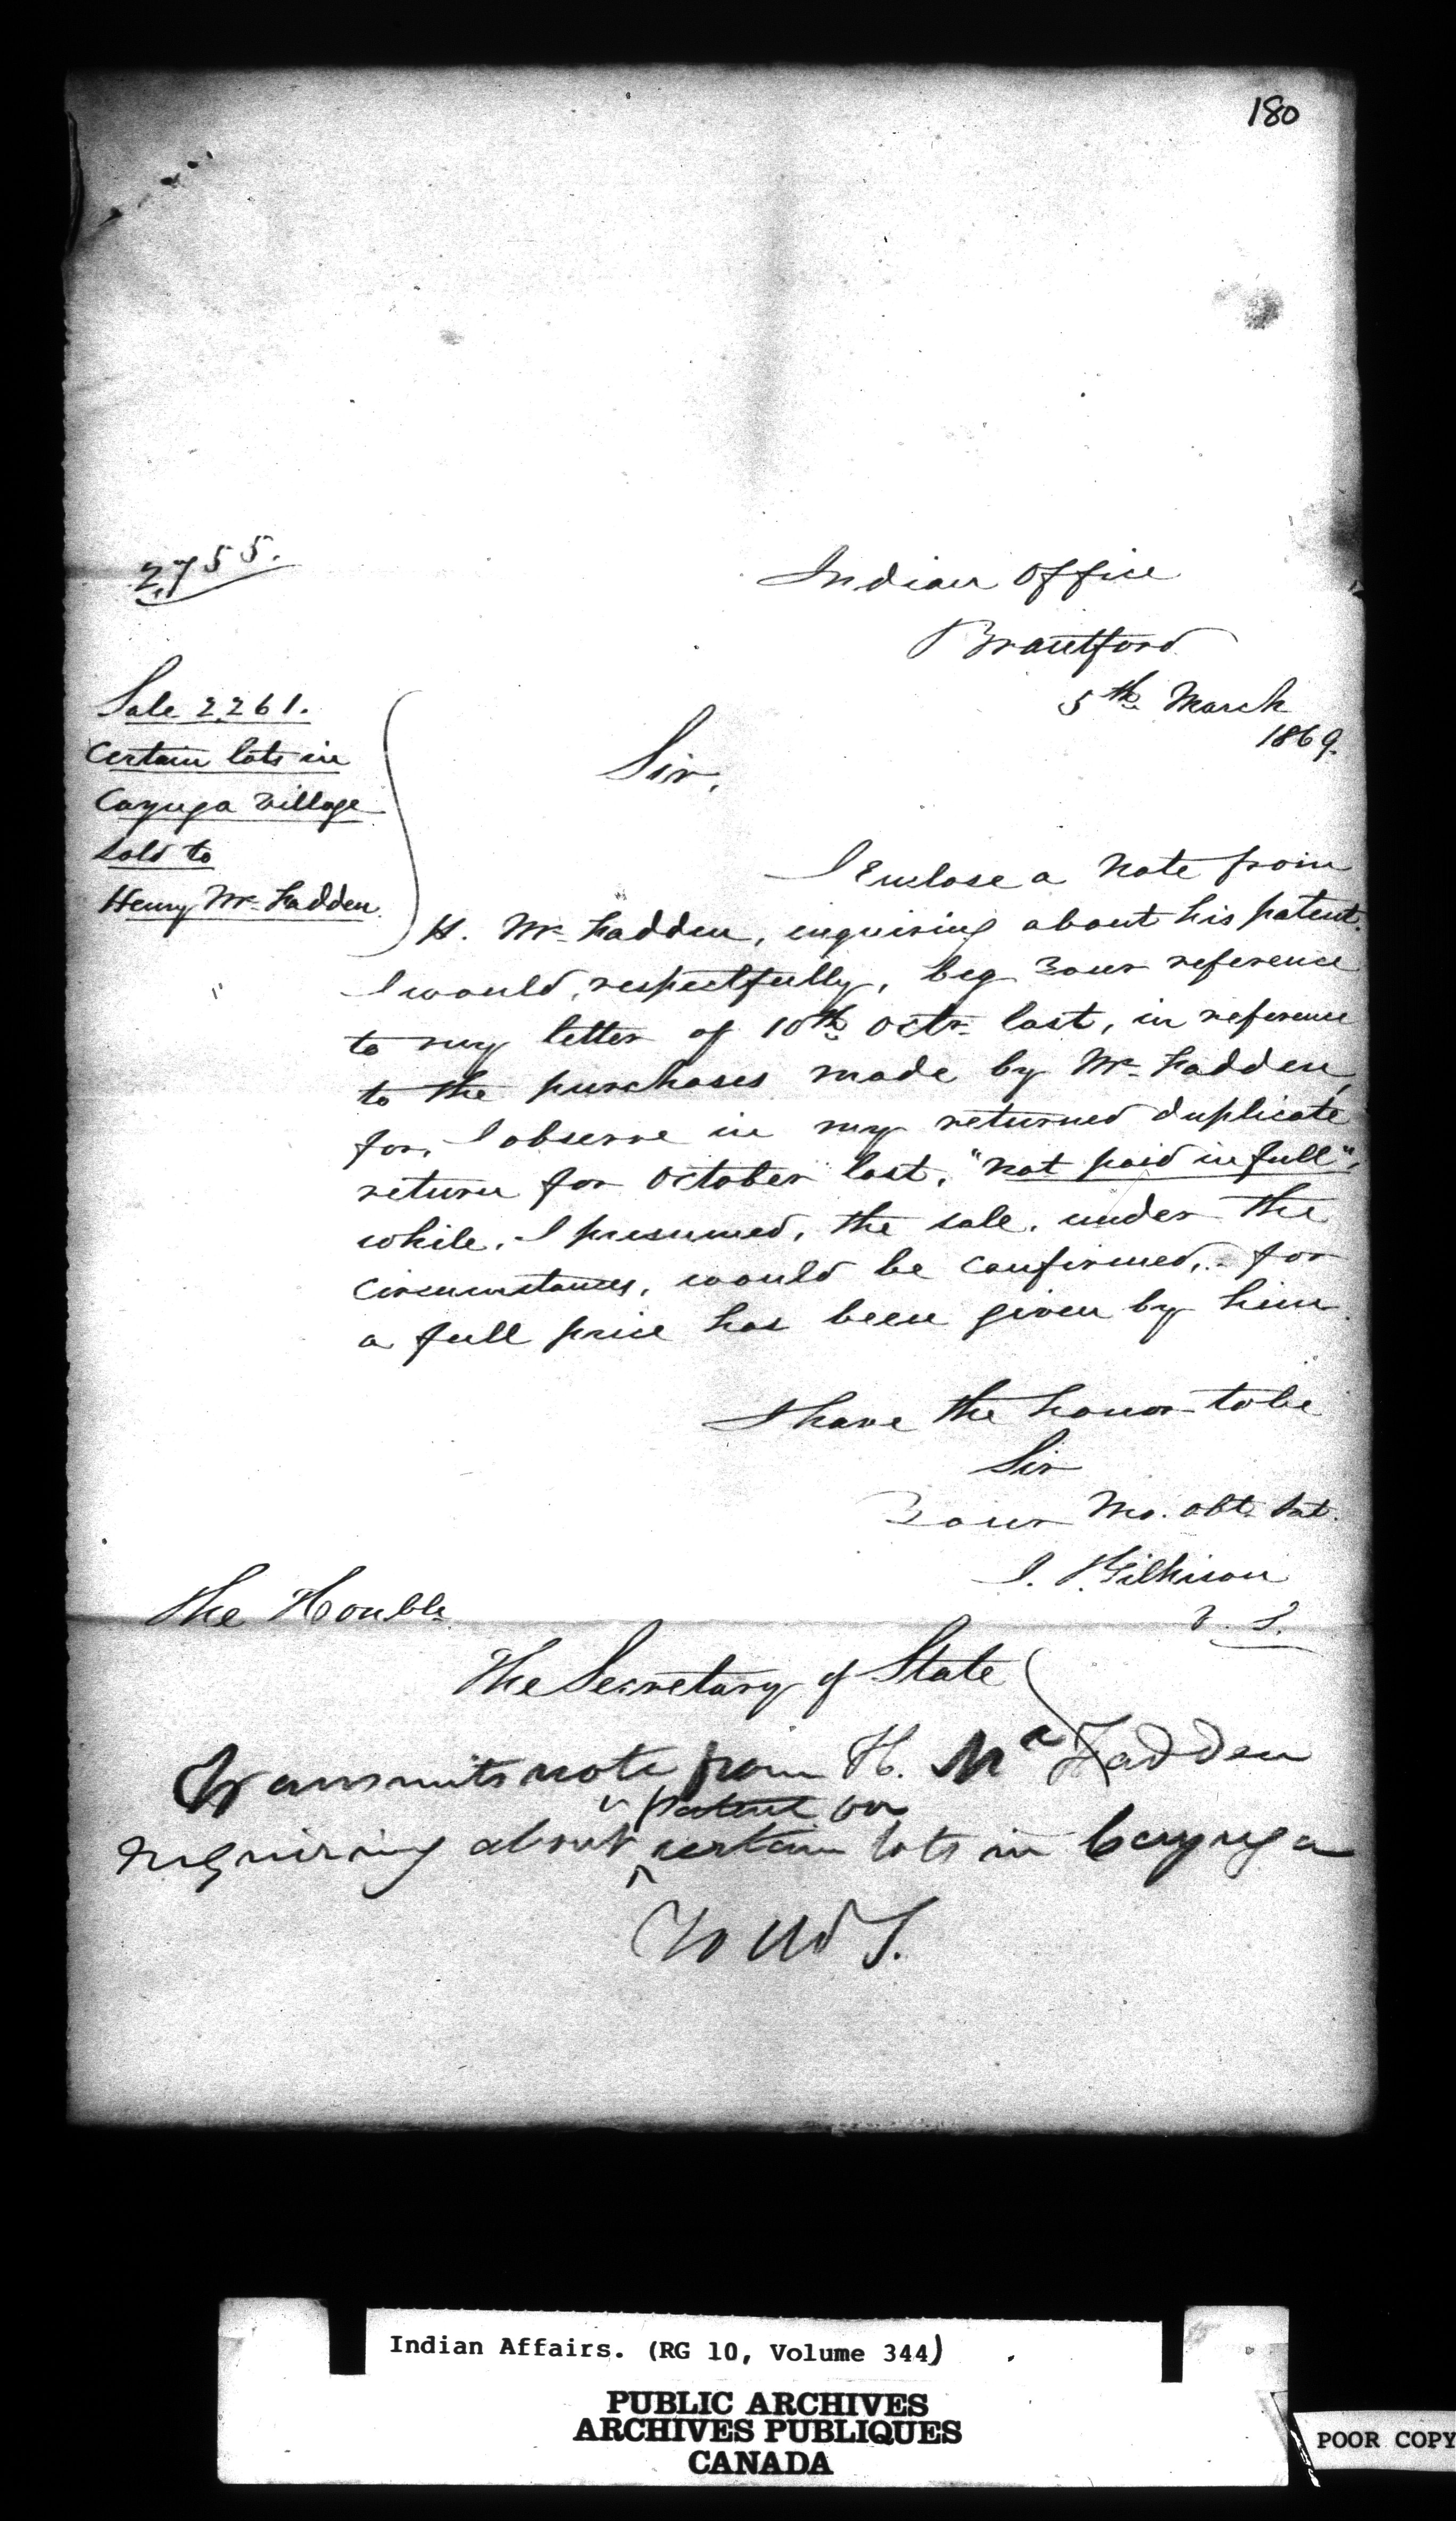 180
2,755.
Indian Office
Brantford
5th March
1869.
Sale 2261.
Certain lots in
Cayuga Village
sold to
Henry Mc Fadden.
Sir,
I Enclose a note from
H. Mc Fadden, inquiring about his patent.
I would, respectfully, beg Your reference
to my letter of 10th Octr. last, in reference
to the purchases made by Mc Fadden,
for, I observe in my returned duplicate
return for October last, "not paid in full",
while, I presumed, the sale, under the
circumstances, would be confirmed, for
a full price has been given by him.
I have the honor to be
Sir
Your Mo. Obt. Svt.
J. Gilkison
V. S.
The Honble.
The Secretary of State
Transmits note from H. Mc Fadden
" patent for
enquiring about certain lots in Cayuga
To
Indian Affairs. (RG 10, Volume 344)
PUBLIC ARCHIVES
ARCHIVES PUBLIQUES
CANADA
POOR COPY